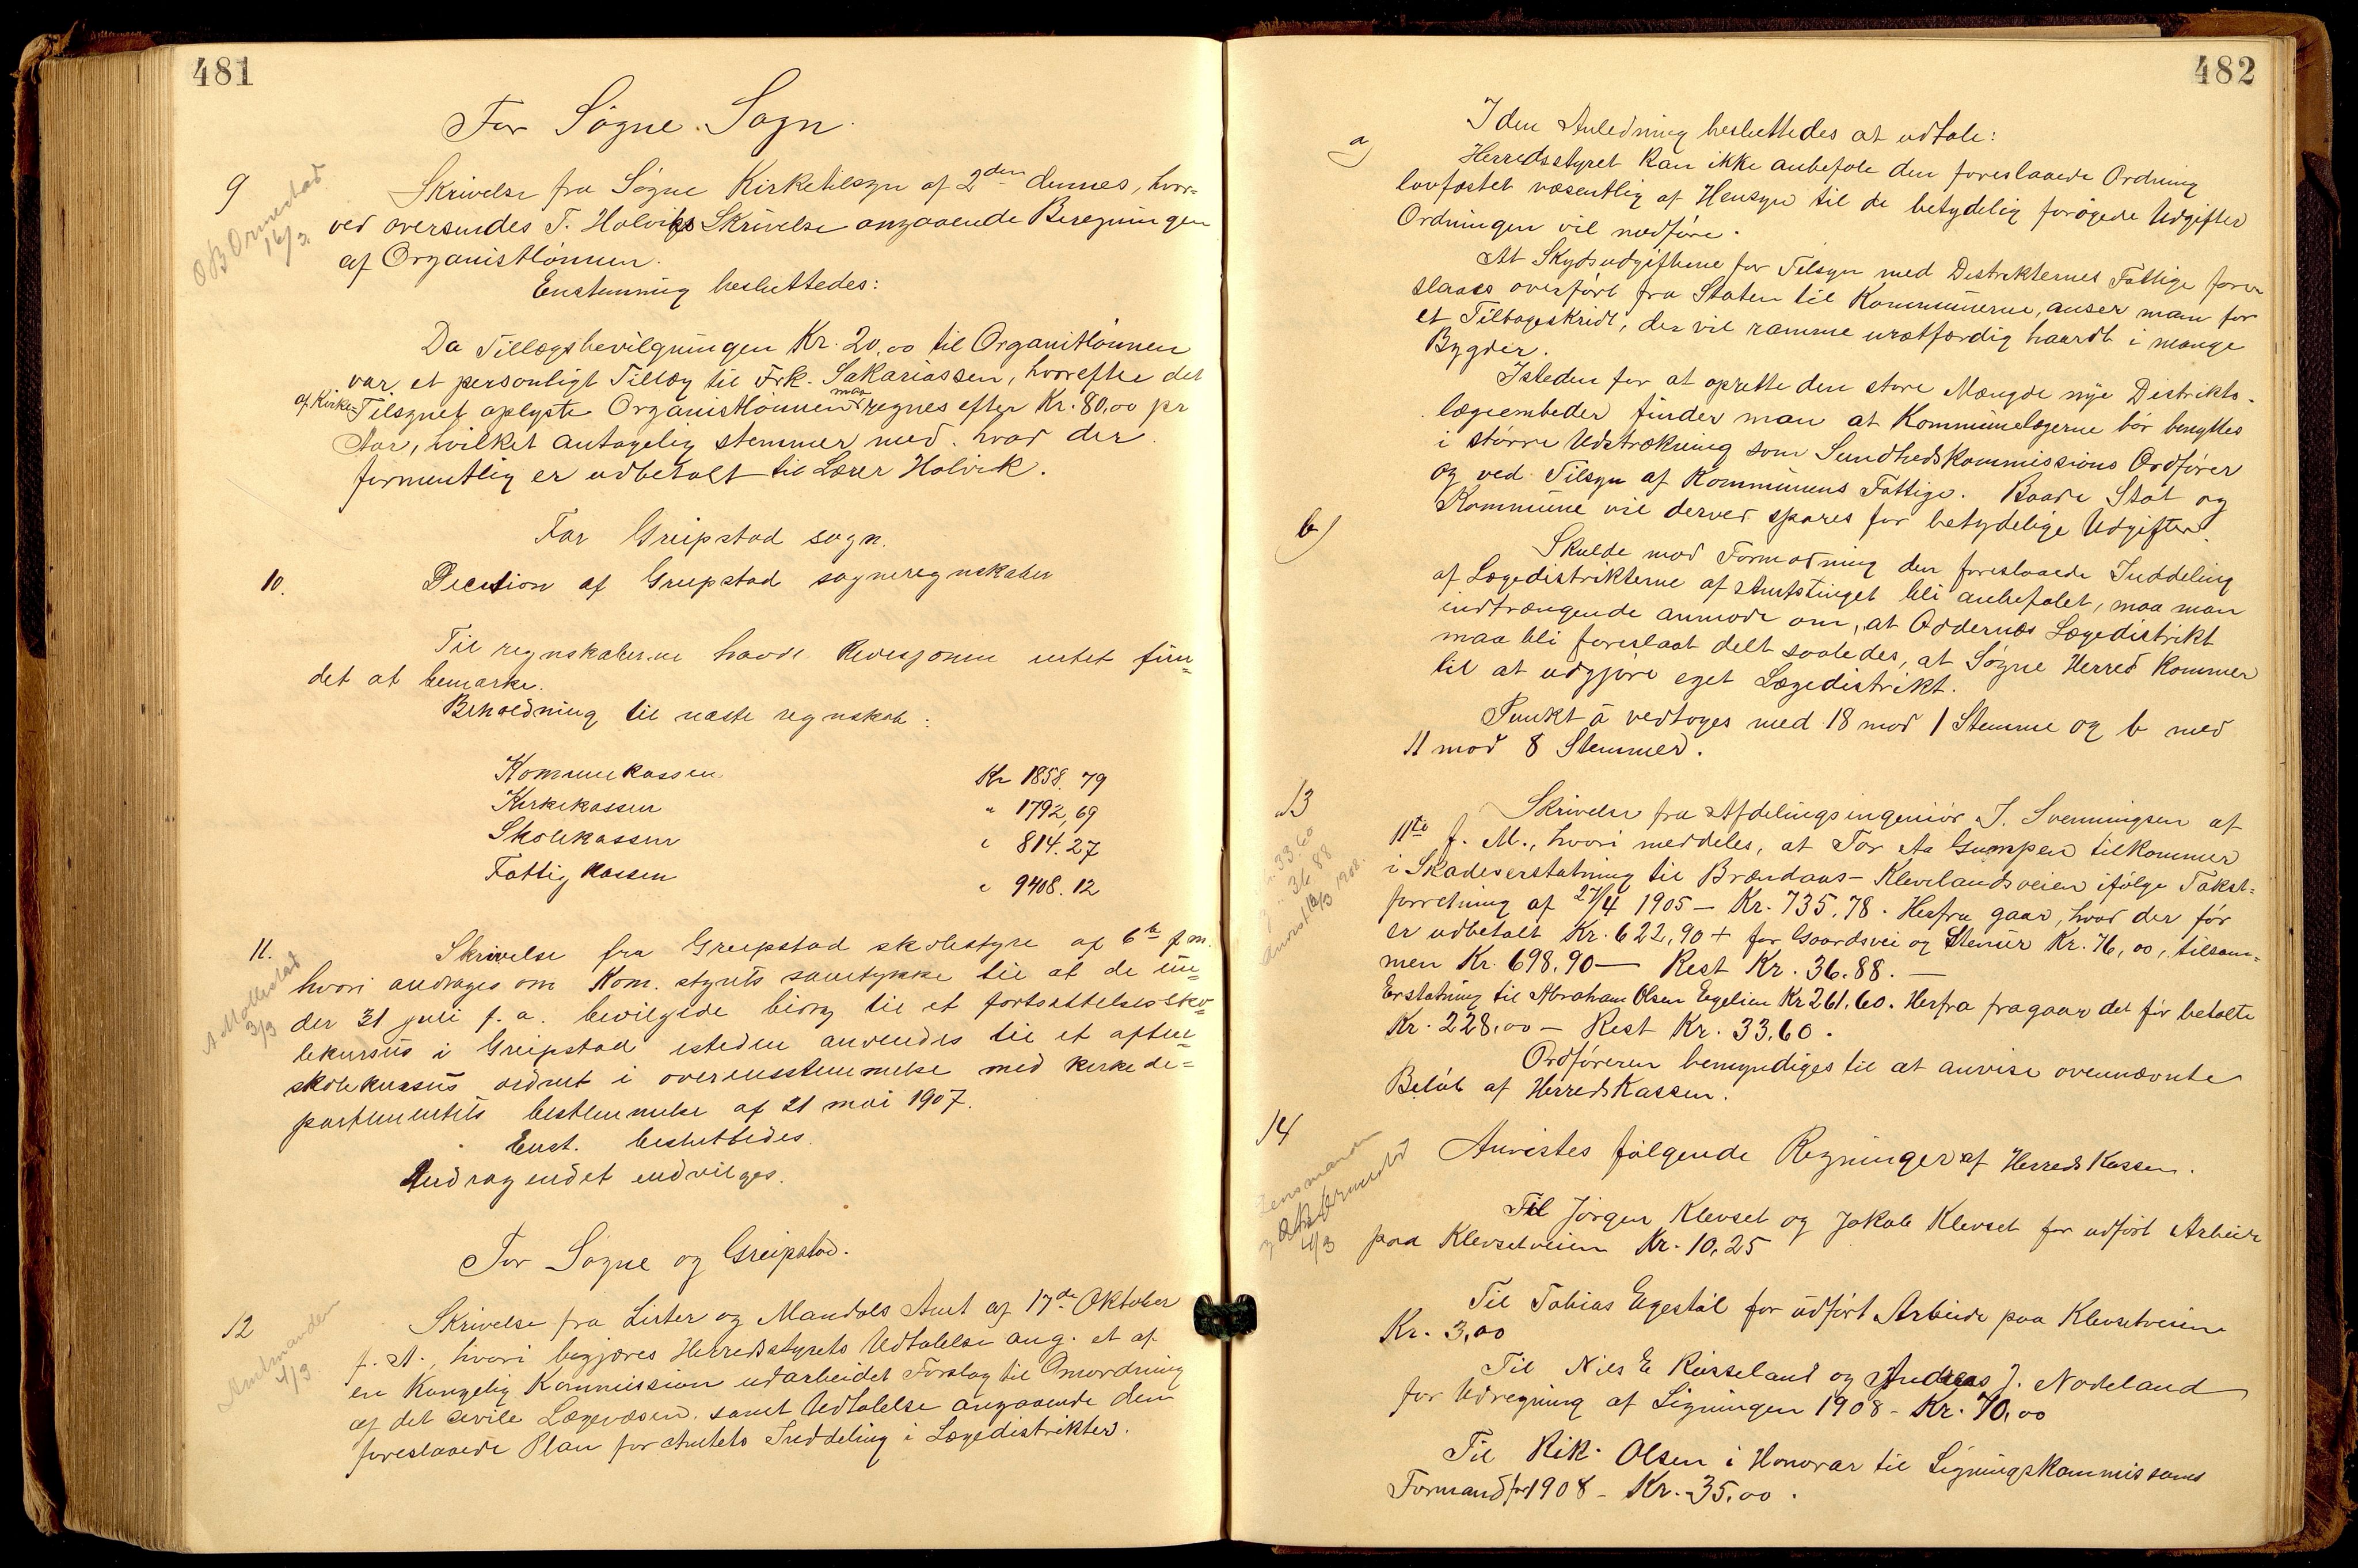 481
For Søgne Sogn.
9
OB Ormestad
16/3
Skrivelse fra Søgne Kirketilsyn af 2den dennes, hvor-
ved oversendes T. Holviks Skrivelse angaaende Beregningen
af Organistlønnen.
Enstemmig besluttedes:
Da Tillægsbevilgningen Kr. 20,00 til Organistlønnen
var et personligt Tillæg til Frk. Sakariassen, hvorefter det
af Kirke-Tilsynet oplyste Organistlønnen maa regnes efter Kr. 80,00 pr
Aar, hvilket antagelig stemmer med hvad der
formentlig er udbetalt til Lærer Holvik.
For Greipstad sogn.
10.
Decition af Greipstad sogneregnskaber
Til regnskaberne havde Revisjonen intet fun-
det at bemærke.
Beholdning til næste regnskab:
Kommunekassen Kr 1858.79
Kirkekassen " 1792,69
Skolekassen " 814.27
Fattigkassen " 9408.12
11.
A Mollestad
3/3
Skrivelse fra Greipstad skolestyre af 6te f.m.
hvori andrages om Kom. styrets samtykke til at de un-
der 31 juli f. a. bevilgede bidrag til et fortsættelsessko-
lekursus i Greipstad isteden anvendes til et aften-
skolekursus ordnet i overensstemmelse med kirkede-
partementets bestemmelse af 21 mai 1907.
Enst. besluttedes
Andragendet indvilges.
For Søgne og Greipstad.
12
Amtmanden
4/3
Skrivelse fra Lister og Mandals Amt af 17de Oktober
f. A., hvori begjæres Herredsstyrets Udtalelse ang. et af
en Kongelig Kommission udarbeidet Forslag til Omordning
af det civile Lægevæsen samt Udtalelse angaaende den
foreslaaede Plan for Amtets Inddeling i Lægedistrikter.
482
I den Anledning besluttedes at udtale:
a)
Herredsstyret kan ikke anbefale den foreslaaede Ordning
lovfæstet væsentlig af Hensyn til de betydelig forøgede Udgifter
Ordningen vil medføre.
At Skydsudgifterne for Tilsyn med Distrikternes Fattige fore-
slaaes overført fra Staten til Kommunerne, anser man for
et Tilbageskridt, der vil ramme uretfærdig haardt i mange
Bygder.
Isteden for at oprette den store Mængde nye Distrikts-
lægeembeder finder man at Kommunelægerne bør benyttes
i større Udstrækning som Sundhedskommissions Ordfører
og ved Tilsyn af Kommunens Fattige. Baade Stat og
Kommune vil derved spares for betydelige Udgifter.
b)
Skulde mod Formodning den foreslaaede Inddeling
af Lægedistrikterne af Amtstinget bli anbefalet, maa man
indtrængende anmode om, at Oddernes Lægedistrikt
maa bli foreslaat delt saaledes, at Søgne Herred kommer
til at udgjøre eget Lægedistrikt.
Punkt a vedtoges med 18 mod 1 Stemme og b med
11 mod 8 Stemmer.
13
33.60
36.88
Anvist 16/3 1908.
Skrivelse fra Afdelingsingeniør J. Svenningsen af
11te f. M., hvori meddeles, at Tor Aa Gumpen tilkommer
i Skadeserstatning til Brændaas-Klevelandsveien ifølge Takst-
forretning af 27/4 1905 – Kr. 735,78. Herfra gaar, hvad der før
er udbetalt Kr. 622,90 + for Gaardsvei og Stenur Kr. 76,00, tilsam-
men Kr. 698,90 — Rest Kr. 36.88. —
Erstatning til Abraham Olsen Egelien Kr 261.60. Herfra fragaar det før betalte
Kr. 228,00 – Rest Kr. 33,60.
Ordføreren bemyndiges til at anvise ovennævnte
Beløb af Herredskassen.
14
Lensmanden
4/3
Anvistes følgende Regninger af Herredskassen.
Til Jørgen Klevset og Jakob Klevset for udført Arbeide
paa Klevsetveien Kr. 10,25
Til Tobias Egestøl for udført Arbeide paa Klevsetveien
Kr. 3,00
Til Nils E Risseland og Andreas J. Nodeland
for Udregning af Ligningen 1908 – Kr. 70,00
Til Rik. Olsen i Honorar til Ligningskommissions
Formand for 1908 – Kr. 35,00.